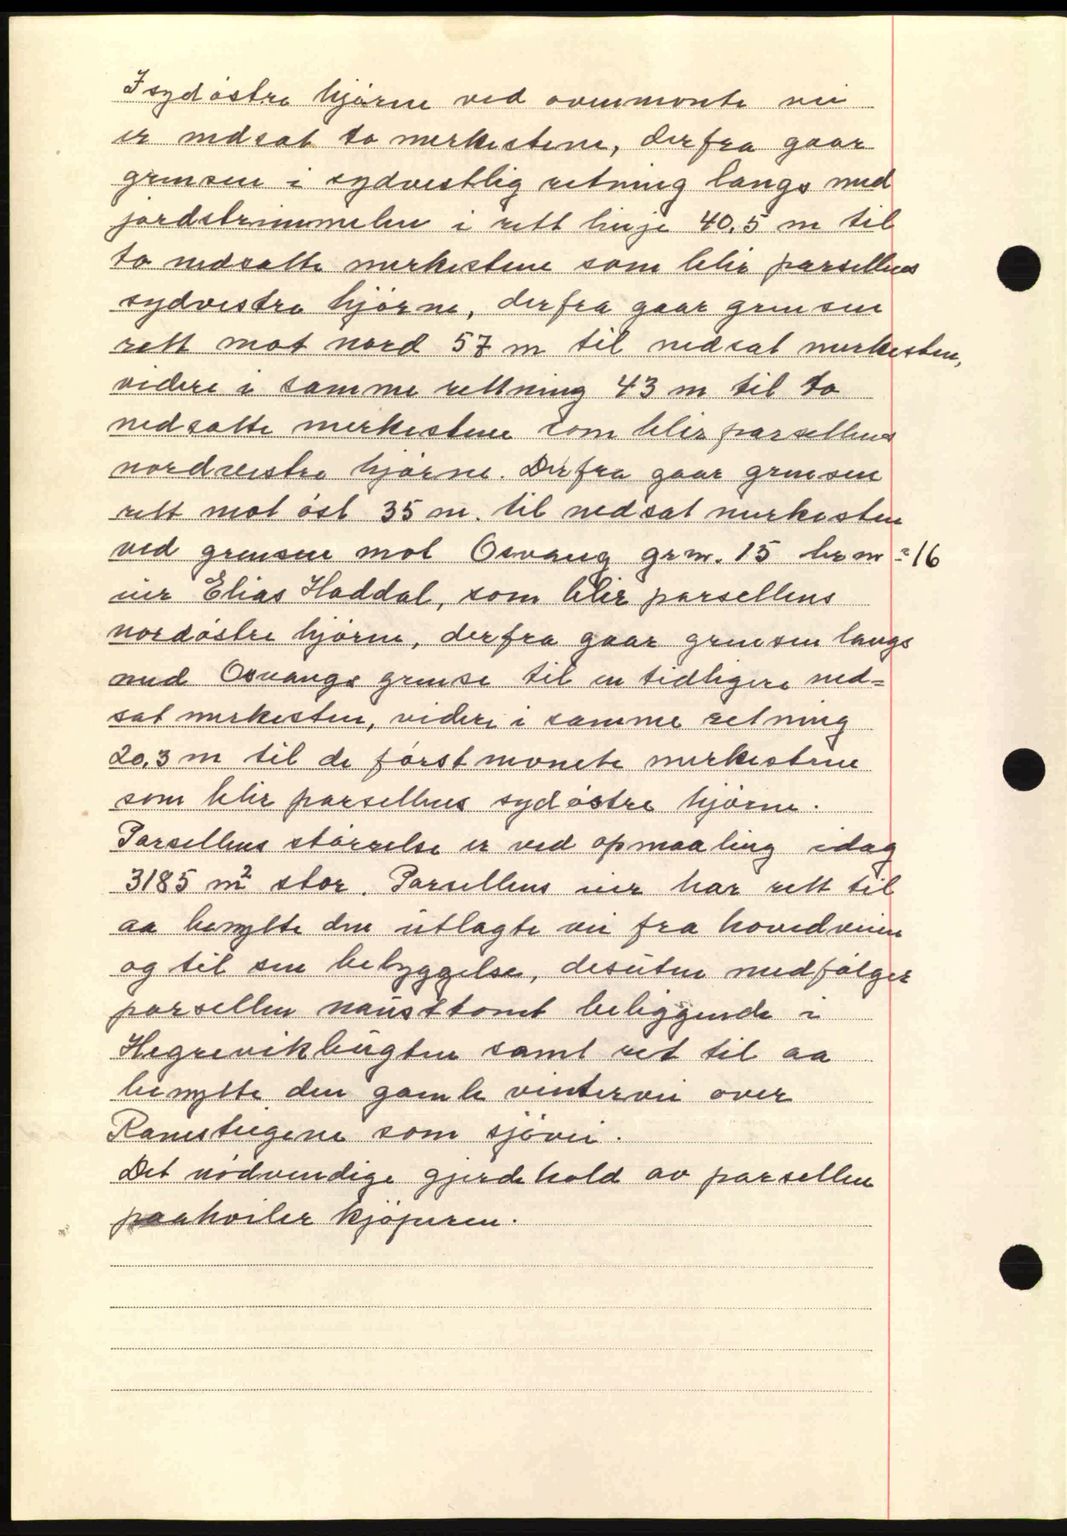 I sydöstre hjörne ved ovennevnte vei
er nedsat to merkestene, derfra gaar
grensen i sydvestlig retning langs med
jordstrimmelen i rett linje 40,5 m til
to nedsatte merkestene som blir parsellens
sydvestre hjörne, derfra gaar grensen
rett mot nord 57 m til nedsat merkesten,
videre i samme rettning 43 m til to
nedsatte merkestene som blir parsellens
nordvestre hjörne. Derfra gaar grensen
rett mot öst 35 m. til nedsat merkesten
ved grensen mot Osvang grn. 15 br n = 16
eier Elias Haddal, som blir parsellens
nordöstre hjörne, derfra gaar grensen langs
med Osvangs grense til en tidligere ned=
sat merkesten, videre i samme retning
20,3 m til de först nevnte merkestene
som blir parsellens sydöstre hjörne.
Parsellens störrelse er ved opmaaling idag
3185 m² stor. Parsellens eier har rett til
aa benytte den utlagte vei fra hovedveien
og til sin bebyggelse, desuten medfölger
parsellen nausttomt beliggende i
Hegrevikbugten samt ret til aa
benytte den gamle vintervei over
Ramsteigene som sjövei.
Det nödvendige gjerdehold av parsellen
paahviler kjöperen.